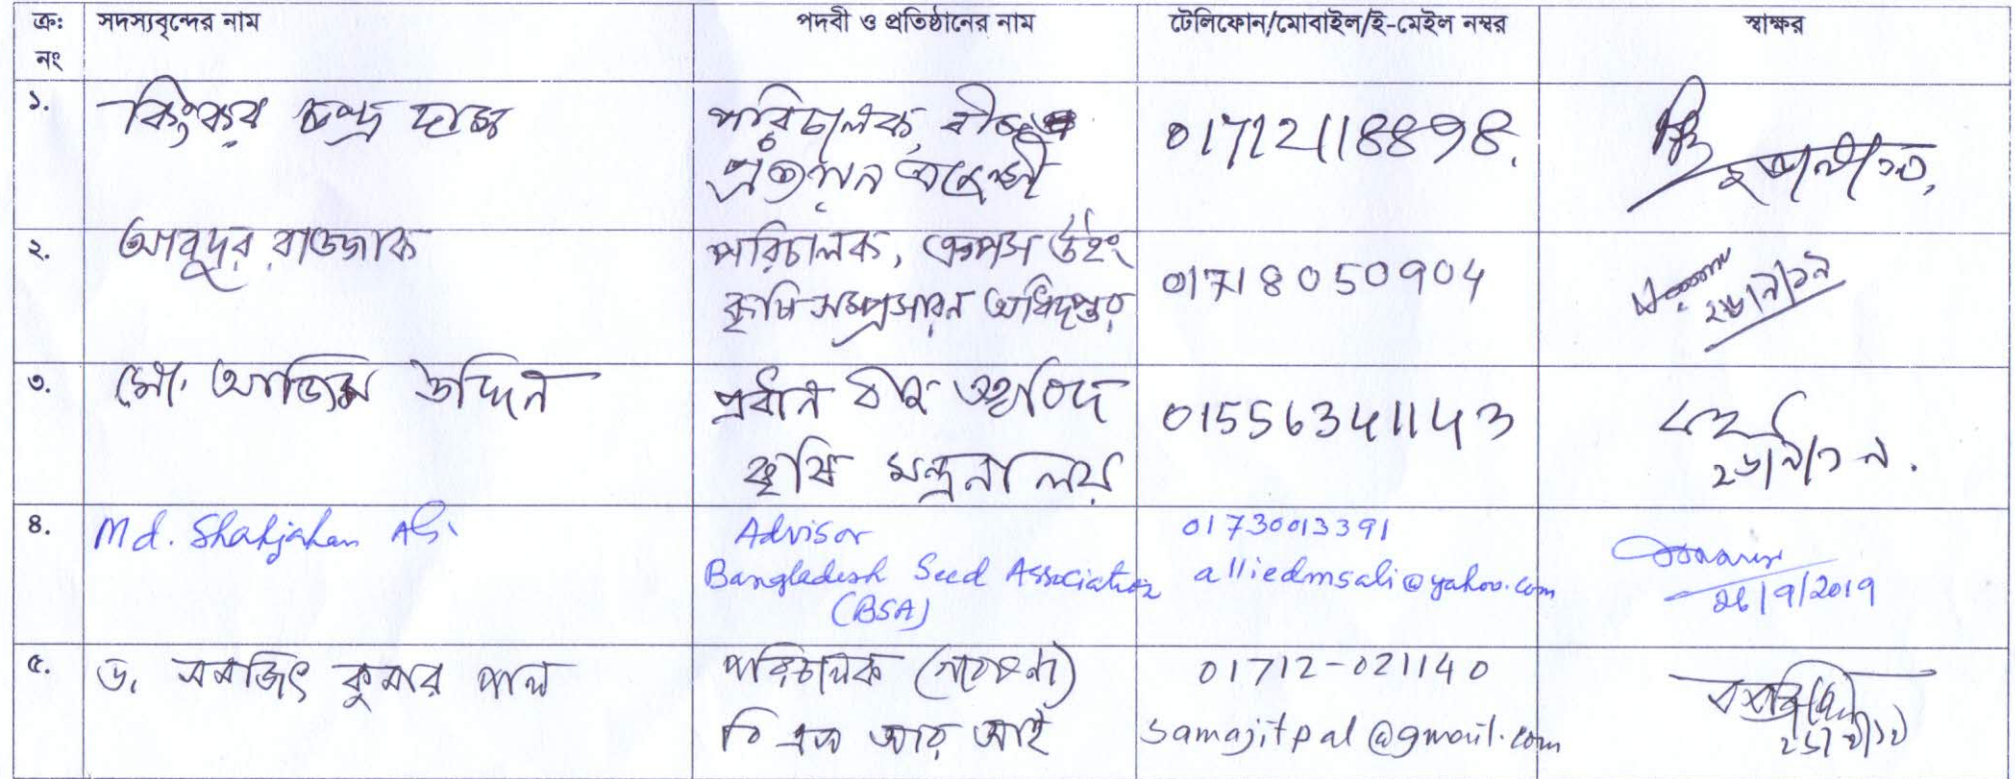 ক্র: নং	সদস্যবৃন্দের নাম	পদবী ও প্রতিষ্ঠানের নাম	টেলিফোন/মোবাইল/ই-মেইল নম্বর	স্বাক্ষর
১.
কিংকর চন্দ্র দাস
পরিচালক, বীজ
প্রত্যয়ন এজেন্সী
01712118898.
২.
আবদুর রাজ্জাক
পরিচালক, ক্রপস উইং
কৃষি সম্প্রসারন অধিদপ্তর
01718050904
২৬/৯/১৯
৩.
মো: আজিম উদ্দিন
প্রধান বীজ তত্ত্ববিদ
কৃষি মন্ত্রনালয়
01556341143
২৬/৯/১৯.
৪.
Md. Shahjahan Ali
Advisor
Bangladesh Seed Association
(BSA)
01730013391
alliedmsali@yahoo.com
26/9/2019
৫.
ড. সমজিৎ কুমার পাল
পরিচালক (গবেষণা)
বি এস আর আই
01712-021140
samajitpal@gmail.com